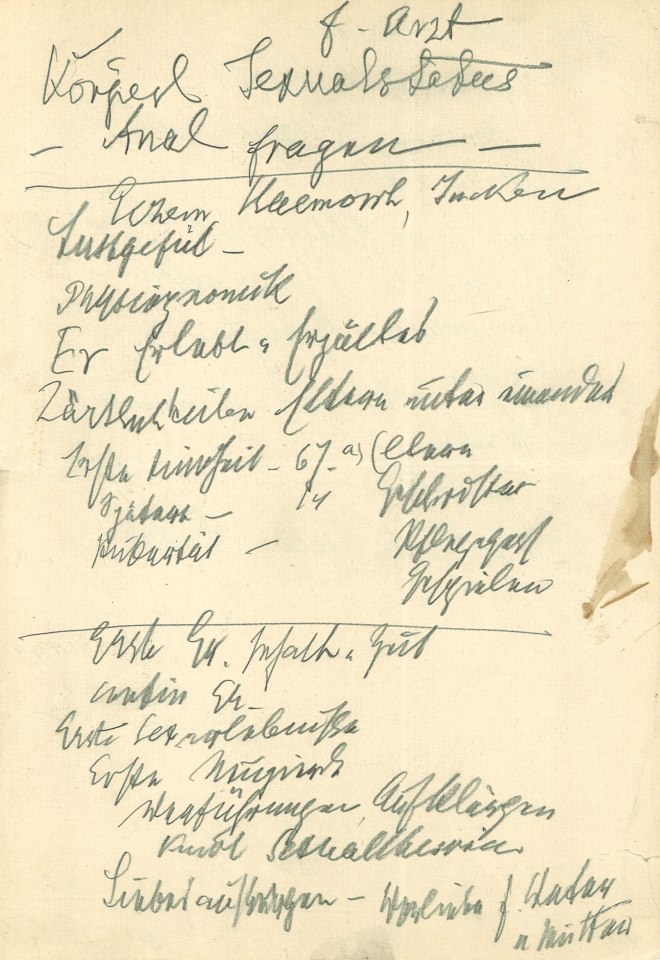 f. Arzt
Körperl Sexualstatus
- Anal fragen -
Ekzem Haemorrh, Jucken
Lustgefül -
Physiognomik
Er Erlebt u Erzältes
Zärtlichkeiten Eltern unter einander
Erste Kindheit - 67. a) Eltern
Später - 14 Geschwister
Pubertät -
Gespielen
Erste Er. Inhalt u Zeit
Er.
Erste Sexerlebnisse
Erste Neugierde
Verführungen, Aufklärungen
Kindl Sexualtheorien
Liebesäusserungen - Vorliebe f. Vater
u Mutter